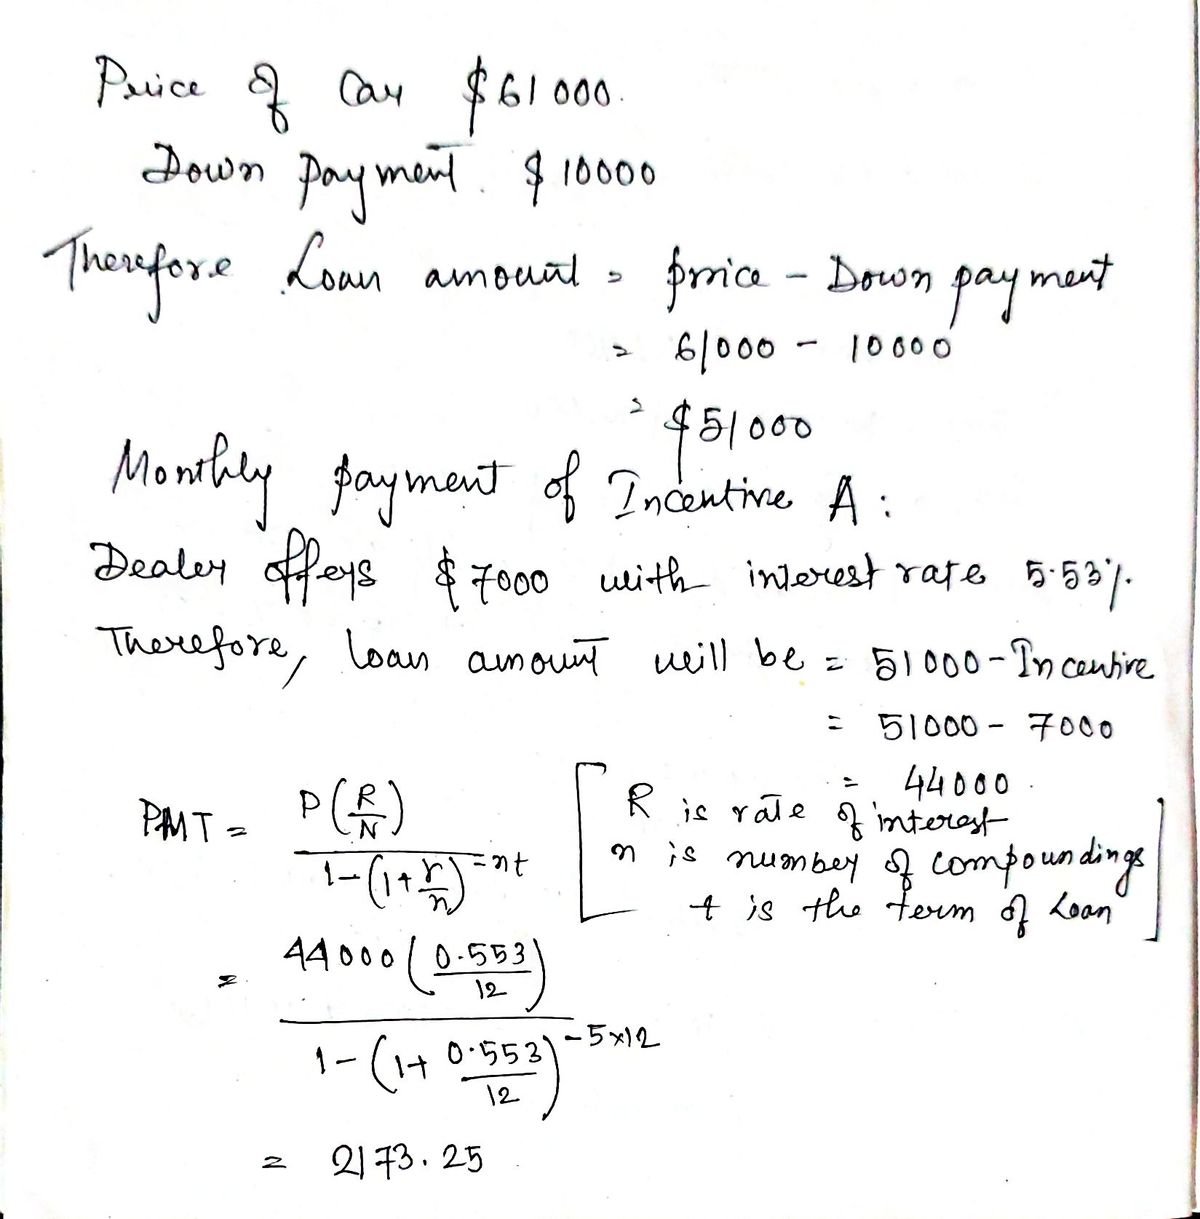 Price of Car $61000.
Down payment. $10000
Therefore Loan amount = price - Down payment
= 61000 - 10000
= $51000
Monthly payment of Incentive A:
Dealer offers $7000 with interest rate 5.53%.
Therefore, loan amount will be = 51000 - Incentive
= 51000 - 7000
= 44000.
PMT = P(R/N) / 1-(1+r/n)^-nt
[R is rate of interest
n is number of compoundings
t is the term of Loan]
= 44000(0.553/12) / 1-(1+0.553/12)^-5×12
= 2173.25